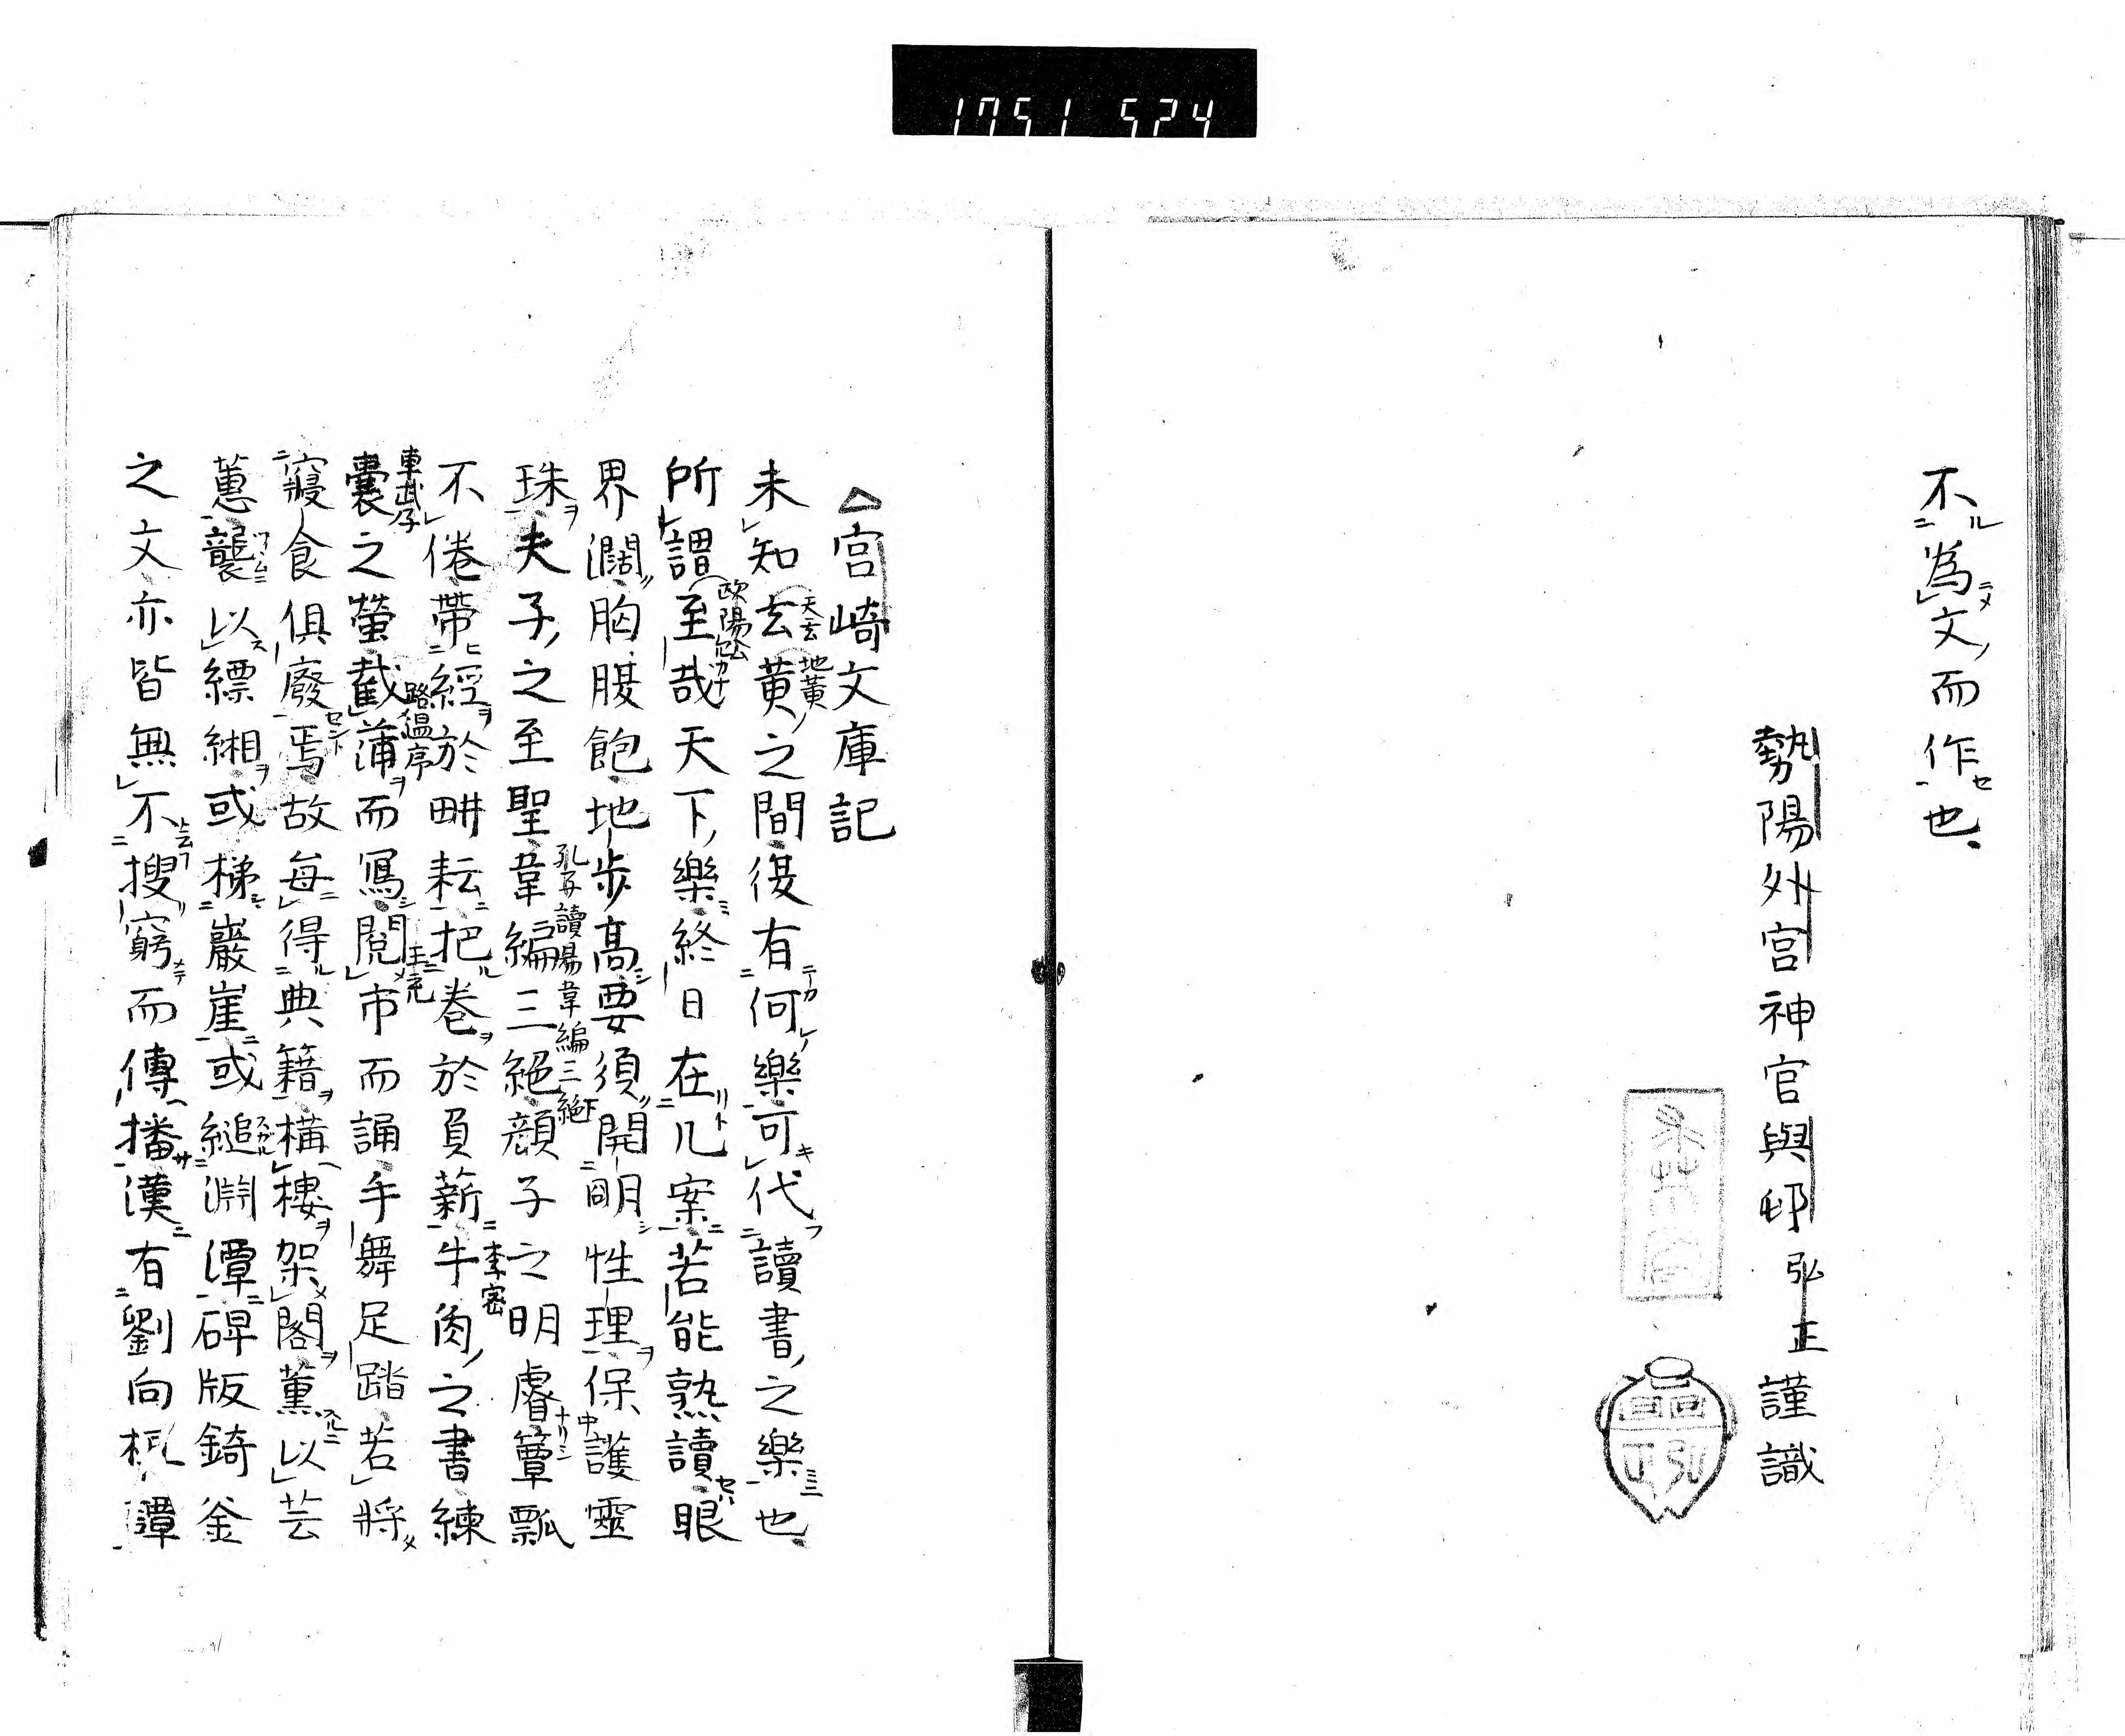 1751 524
不為文而作也
勢陽外宮神官與邨弘正謹識
弘正
△宮崎文庫記
未知玄黃之間復有何樂可代讀書之樂也
天玄
地黃
所謂至哉天下樂終日在几案若能熟讀眼
界濶胸腹飽地步高要須開明性理保護靈
珠夫子之至聖韋編三絕顏子之明睿簞瓢
孔子讀易韋編三絕
不倦帶經於畊耘把卷於負薪牛角之書練
李密
囊之螢截蒲而寫閱市而誦手舞足踏若將
車武子
路温
王充
寢食俱廢焉故每得典籍構樓架閣薰以芸
蕙襲以縹緗或梯巖崖或縋淵潭碑版錡釜
之文亦皆無不搜窮而傳播漢有劉向